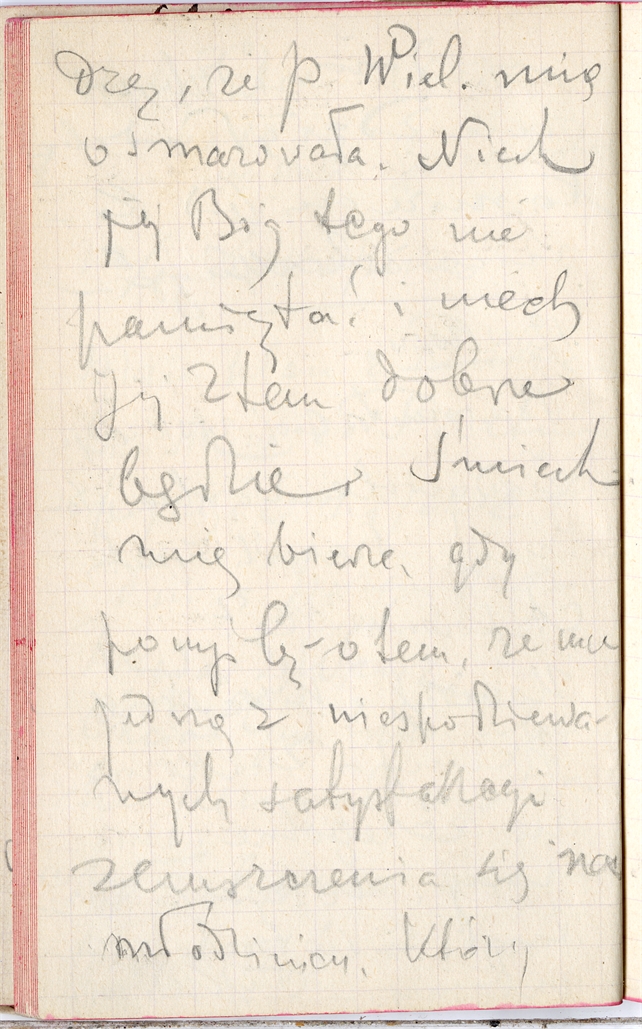 drzę, że p. Wiel. mię
osmarowała. Niech
jej Bóg tego nie
pamięta! i niech
jej z tem dobrze
będzie. Śmiech
mię bierze, gdy
pomyślę o tem, że
jedną z niespodziewa-
nych satysfakcyi
zemszczenia się na
młodzieńcu, który